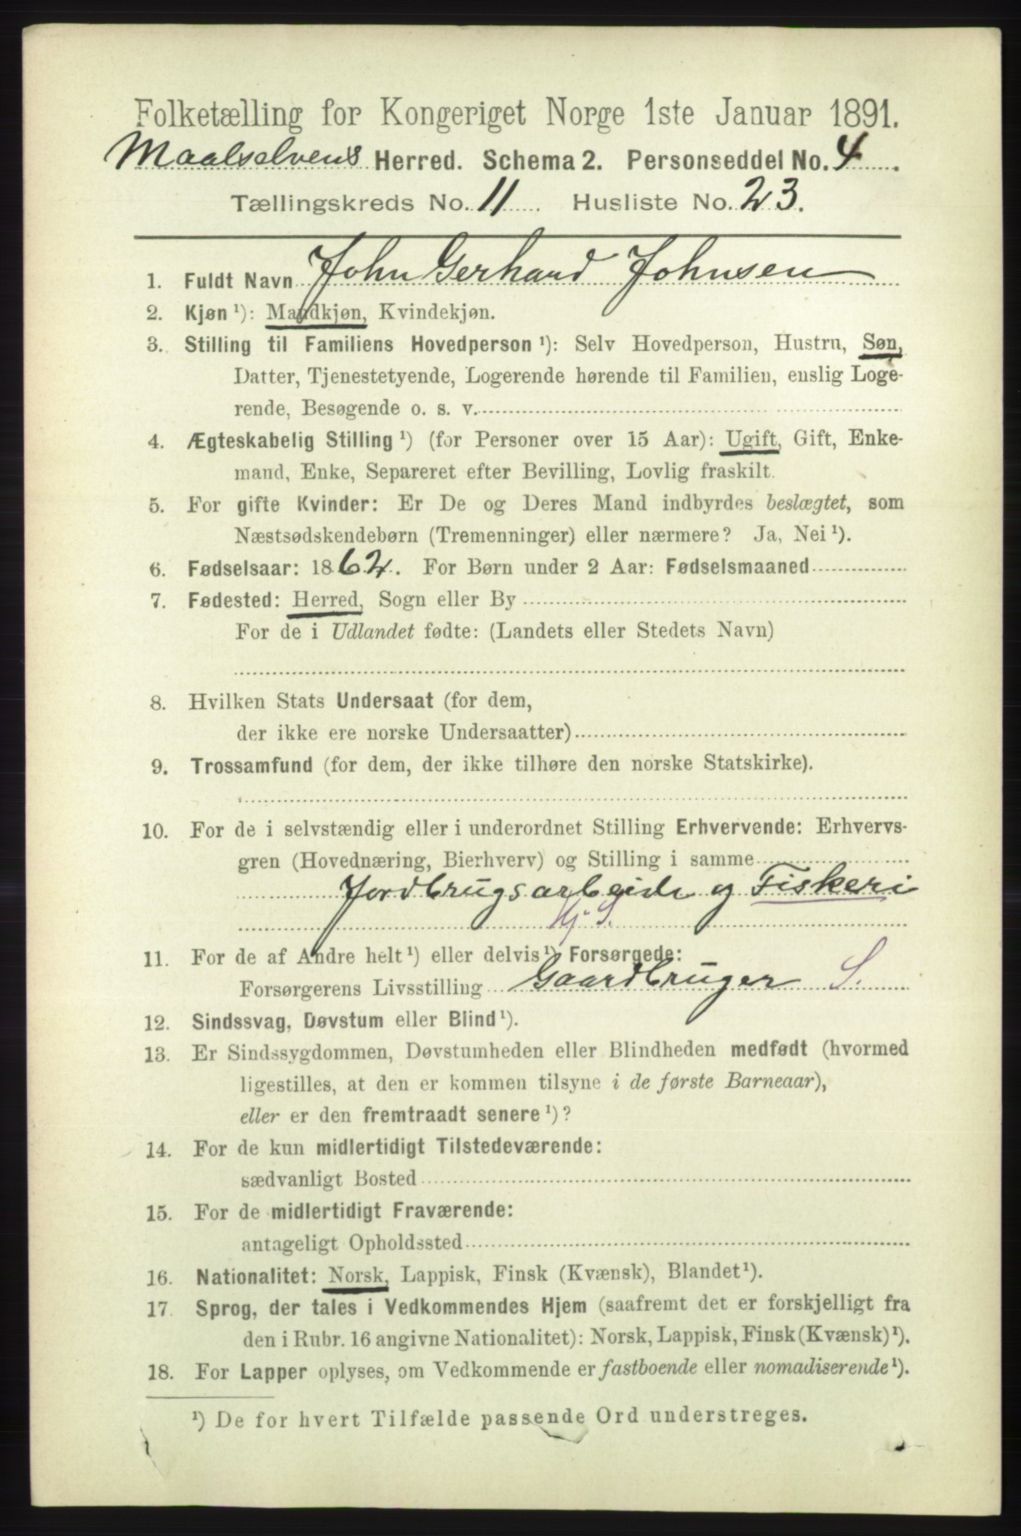 Folketælling for Kongeriget Norge 1ste Januar 1891.
Maalselvens Herred. Schema 2. Personseddel No. 4.
Tællingskreds No. 11 Husliste No. 23.
1. Fuldt Navn John Gerhard Johnsen
2. Kjøn ¹): Mandkjøn, Kvindekjøn.
3. Stilling til Familiens Hovedperson ¹): Selv Hovedperson, Hustru, Søn,
Datter, Tjenestetyende, Logerende hørende til Familien, enslig Loge-
rende, Besøgende o. s. v.
4. Ægteskabelig Stilling ¹) (for Personer over 15 Aar): Ugift, Gift, Enke-
mand, Enke, Separeret efter Bevilling, Lovlig fraskilt.
5. For gifte Kvinder: Er De og Deres Mand indbyrdes beslægtet, som
Næstsødskendebørn (Tremenninger) eller nærmere? Ja, Nei ¹).
6. Fødselsaar: 1862. For Børn under 2 Aar: Fødselsmaaned
7. Fødested: Herred, Sogn eller By
For de i Udlandet fødte: (Landets eller Stedets Navn)
8. Hvilken Stats Undersaat (for dem,
der ikke ere norske Undersaatter)
9. Trossamfund (for dem, der ikke tilhøre den norske Statskirke).
10. For de i selvstændig eller i underordnet Stilling Erhvervende: Erhvervs-
gren (Hovednæring, Bierhverv) og Stilling i samme
Jordbrugsarbeide og Fiskeri
Hj. S.
11. For de af Andre helt ¹) eller delvis ¹) Forsørgede:
Forsørgerens Livsstilling Gaardbruger S.
12. Sindssvag, Døvstum eller Blind ¹).
13. Er Sindssygdommen, Døvstumheden eller Blindheden medfødt (hvormed
ligestilles, at den er kommen tilsyne i de første Barneaar),
eller er den fremtraadt senere ¹)?
14. For de kun midlertidigt Tilstedeværende:
sædvanligt Bosted
15. For de midlertidigt Fraværende:
antageligt Opholdssted
16. Nationalitet: Norsk, Lappisk, Finsk (Kvænsk), Blandet ¹).
17 Sprog, der tales i Vedkommendes Hjem (saafremt det er forskjelligt fra
den i Rubr. 16 angivne Nationalitet): Norsk, Lappisk, Finsk (Kvænsk) ¹).
18. For Lapper oplyses, om Vedkommende er fastboende eller nomadiserende ¹).
¹) De for hvert Tilfælde passende Ord understreges.